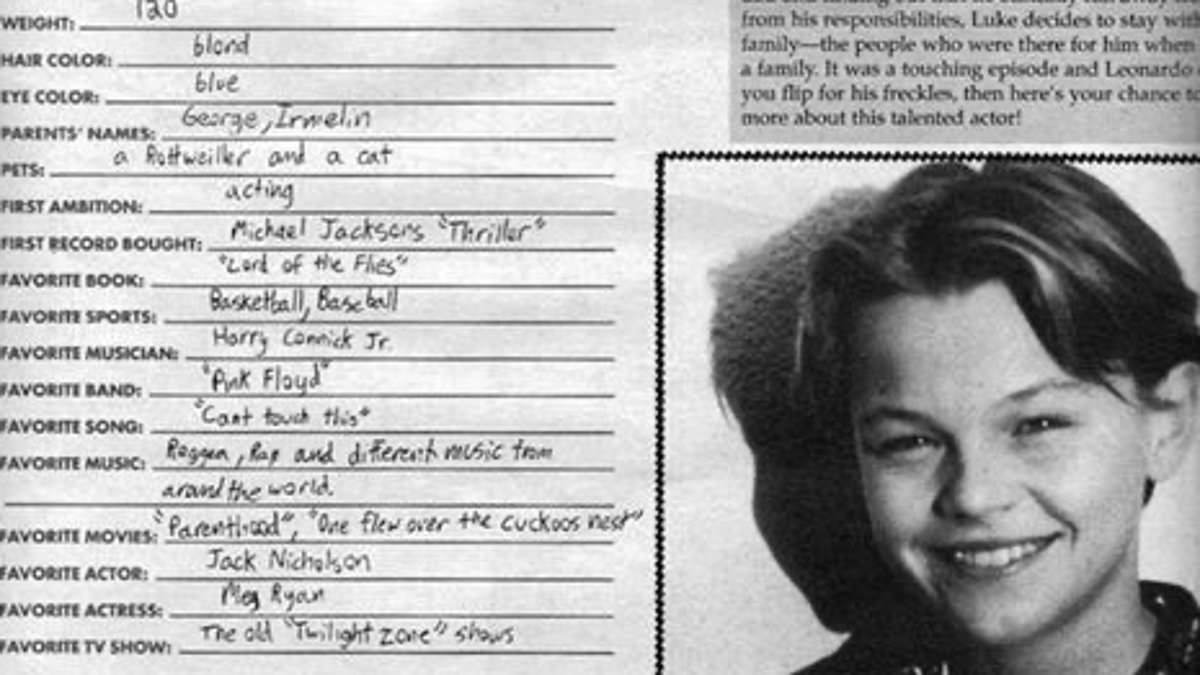 WEIGHT: 120
HAIR COLOR: blond
EYE COLOR: blue
PARENTS' NAMES: George, Irmelin
PETS: a Rottweiller and a cat
FIRST AMBITION: acting
FIRST RECORD BOUGHT: Michael Jacksons "Thriller"
FAVORITE BOOK: "Lord of the Flies"
FAVORITE SPORTS: Basketball, Baseball
FAVORITE MUSICIAN: Harry Connick Jr.
FAVORITE BAND: "Pink Floyd"
FAVORITE SONG: "Cant touch this"
FAVORITE MUSIC: Raggea, Rap and different music from
around the world.
FAVORITE MOVIES: "Parenthood", "One flew over the cuckoos nest"
FAVORITE ACTOR: Jack Nicholson
FAVORITE ACTRESS: Meg Ryan
FAVORITE TV SHOW: The old "Twilight zone" shows
from his responsibilities, Luke decides to stay wit
family—the people who were there for him when
a family. It was a touching episode and Leonardo
you flip for his freckles, then here's your chance to
more about this talented actor!